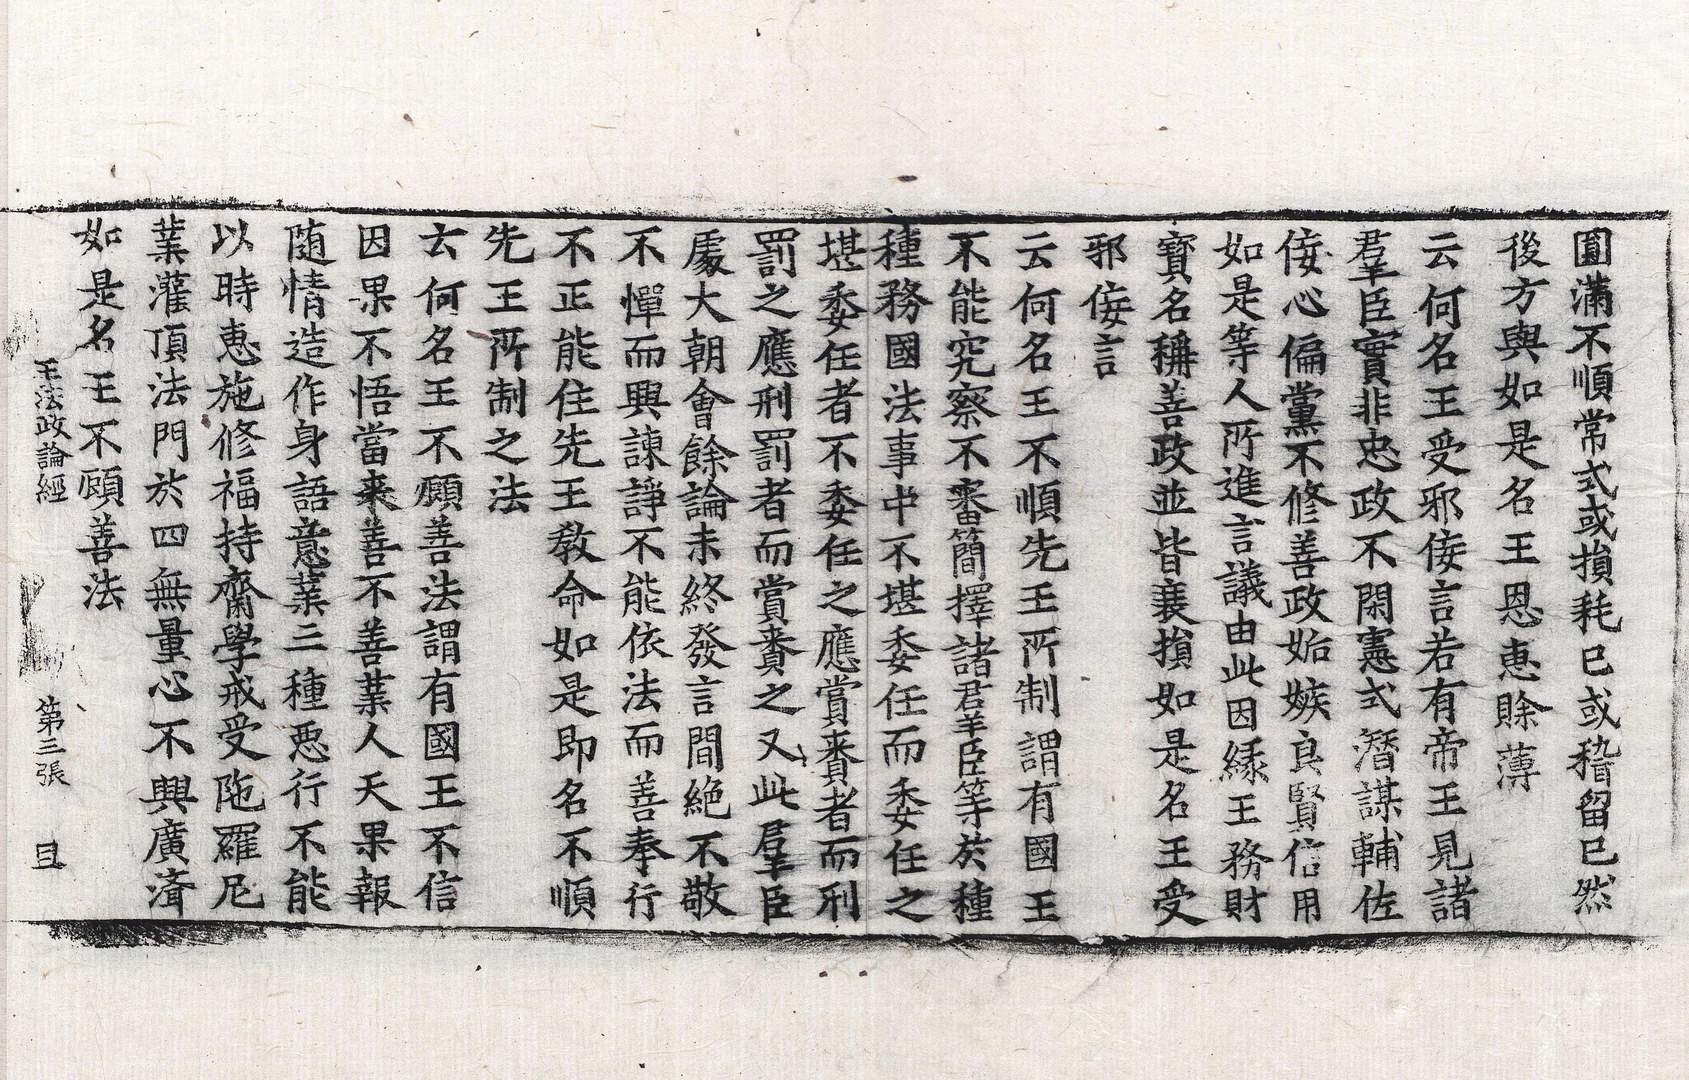 圓滿不順常式或損耗已或稽留已然
後方與如是名王恩惠賖薄
云何名王受邪佞言若有帝王見諸
羣臣實非忠政不閑憲式潛謀輔佐
佞心偏黨不修善政妬嫉良賢信用
如是等人所進言議由此因緣王務財
寳名稱善政並皆衰損如是名王受
邪佞言
云何名王不順先王所制謂有國王
不能究察不審簡擇諸群臣等於種
種務國法事中不堪委任而委任之
堪委任者不委任之應賞賚者而刑
罰之應刑罰者而賞賚之又此羣臣
處大朝會餘論未終發言間絶不敬
不憚而興諫諍不能依法而善奉行
不正能住先王教命如是即名不順
先王所制之法
云何名王不顧善法謂有國王不信
因果不悟當来善不善業人天果報
随情造作身語意業三種惡行不能
以時惠施修福持齋學戒受陁羅尼
業灌頂法門於四無量心不興廣濟
如是名王不顧善法
王法政論經　第三張